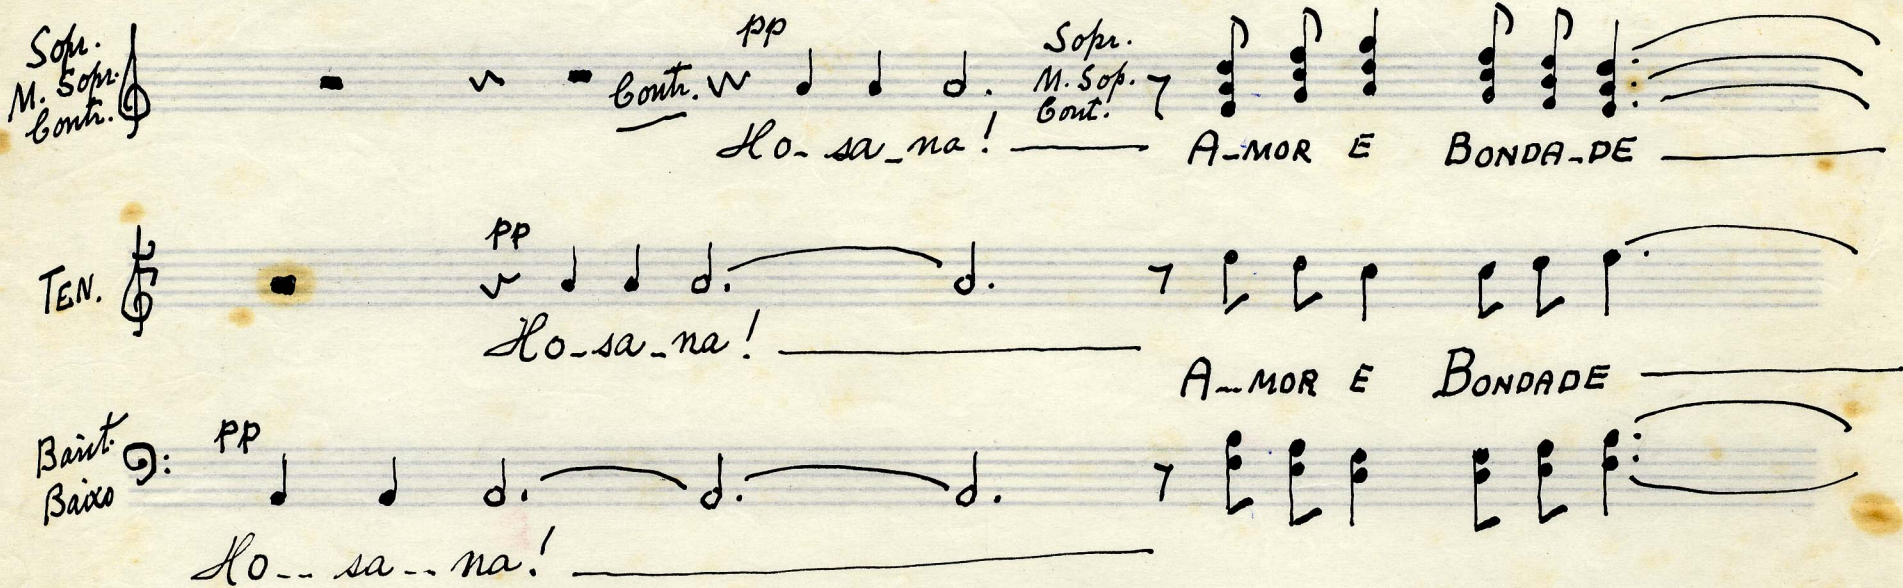 Sopr.
M. Sopr.
Contr.
pp
Contr.
Sopr.
M. Sop.
Cont.
Ho- sa_na! A_MOR E BONDA_DE
TEN.
pp
Ho_sa_na!
A_MOR E BONDADE
Barit.
Baixo
pp
Ho__ sa__ na!